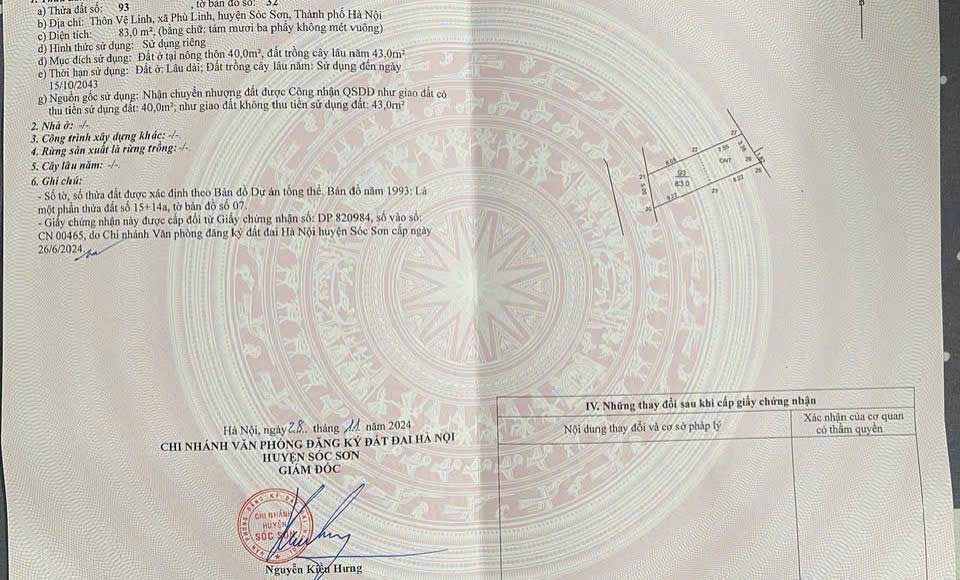 a) Thửa đất số: 93 , tờ bản đồ số: 32
b) Địa chỉ: Thôn Vệ Linh, xã Phù Linh, huyện Sóc Sơn, Thành phố Hà Nội
c) Diện tích: 83,0 m², (bằng chữ: tám mươi ba phẩy không mét vuông)
d) Hình thức sử dụng: Sử dụng riêng
đ) Mục đích sử dụng: Đất ở tại nông thôn 40,0m², đất trồng cây lâu năm 43,0m²
e) Thời hạn sử dụng: Đất ở: Lâu dài; Đất trồng cây lâu năm: Sử dụng đến ngày
15/10/2043
g) Nguồn gốc sử dụng: Nhận chuyển nhượng đất được Công nhận QSDĐ như giao đất có
thu tiền sử dụng đất: 40,0m²; như giao đất không thu tiền sử dụng đất: 43,0m²
2. Nhà ở: -/-
3. Công trình xây dựng khác: -/-
4. Rừng sản xuất là rừng trồng: -/-
5. Cây lâu năm: -/-
6. Ghi chú:
- Số tờ, số thửa đất được xác định theo Bản đồ Dự án tổng thể. Bản đồ năm 1993: Là
một phần thửa đất số 15+14a, tờ bản đồ số 07.
- Giấy chứng nhận này được cấp đổi từ Giấy chứng nhận số: DP 820984, số vào sổ:
CN 00465, do Chi nhánh Văn phòng đăng ký đất đai Hà Nội huyện Sóc Sơn cấp ngày
26/6/2024
27
22
7.55
3.36
ONT
21
93
83.0
28
25
5.00
20
9.27
23
9.22
Hà Nội, ngày 28 tháng 11 năm 2024
CHI NHÁNH VĂN PHÒNG ĐĂNG KÝ ĐẤT ĐAI HÀ NỘI
HUYỆN SÓC SƠN
GIÁM ĐỐC
CHI NHÁNH
HUYỆN
SÓC SƠN
Nguyễn Kiều Hưng
IV. Những thay đổi sau khi cấp giấy chứng nhận
Nội dung thay đổi và cơ sở pháp lý
Xác nhận của cơ quan
có thẩm quyền